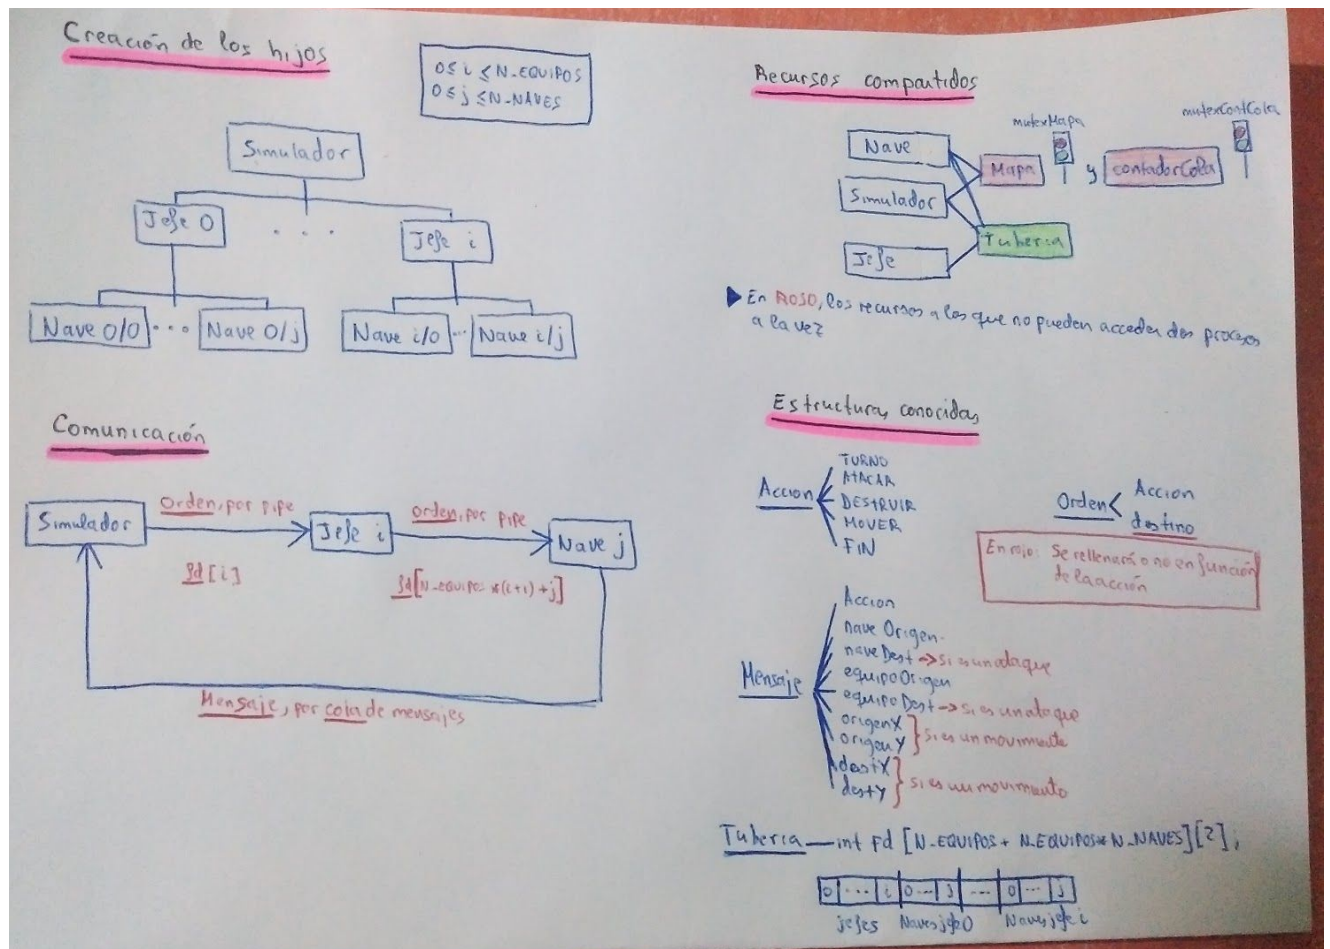 Creación de los hijos
0 ≤ i ≤ N_EQUIPOS
0 ≤ j ≤ N_NAVES
Simulador
Jefe 0
. . .
Jefe i
Nave 0/0 ... Nave 0/j
Nave i/0 ... Nave i/j
Comunicación
Simulador
Orden, por pipe
Jefe i
Orden, por pipe
Nave j
fd [i]
fd[N_EQUIPOS *(i+1)+j]
Mensaje, por cola de mensajes
Recursos compartidos
mutexMapa
mutexContCola
Nave
Mapa
y
contadorCola
Simulador
Tuberia
Jefe
En ROSO, los recursos a los que no pueden acceder dos procesos
a la vez
Estructuras conocidas
Accion
TURNO
ATACAR
DESTRUIR
MOVER
FIN
Orden
Accion
destino
En rojo: Se rellenará o no en función
de la acción
Mensaje
Accion
nave Origen
nave Dest -> si es un ataque
equipo Origen
equipo Dest -> si es un ataque
origenX
origenY } si es un movimiento
destX
destY } si es un movimiento
Tuberia — int Fd [N_EQUIPOS + N_EQUIPOS* N_NAVES][2];
0 ... i 0 ... j ... 0 ... j
jefes Naves jefe 0 Naves jefe i